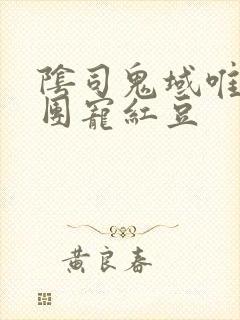 陰司鬼域唯
團寵紅豆
黃良春